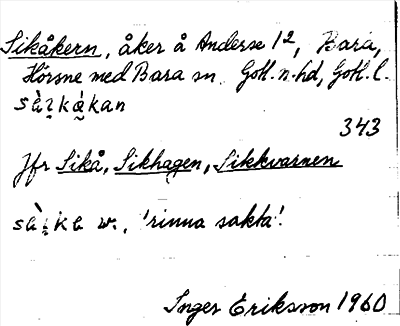 Sikåkern, åker å Anderse 1², Bara,
Hörsne med Bara sn. Gotl. n. hd, Gotl. l.
343
Jfr Sikå, Sikhagen, Sikkvarnen
v., 'rinna sakta'.
Inger Eriksson 1960